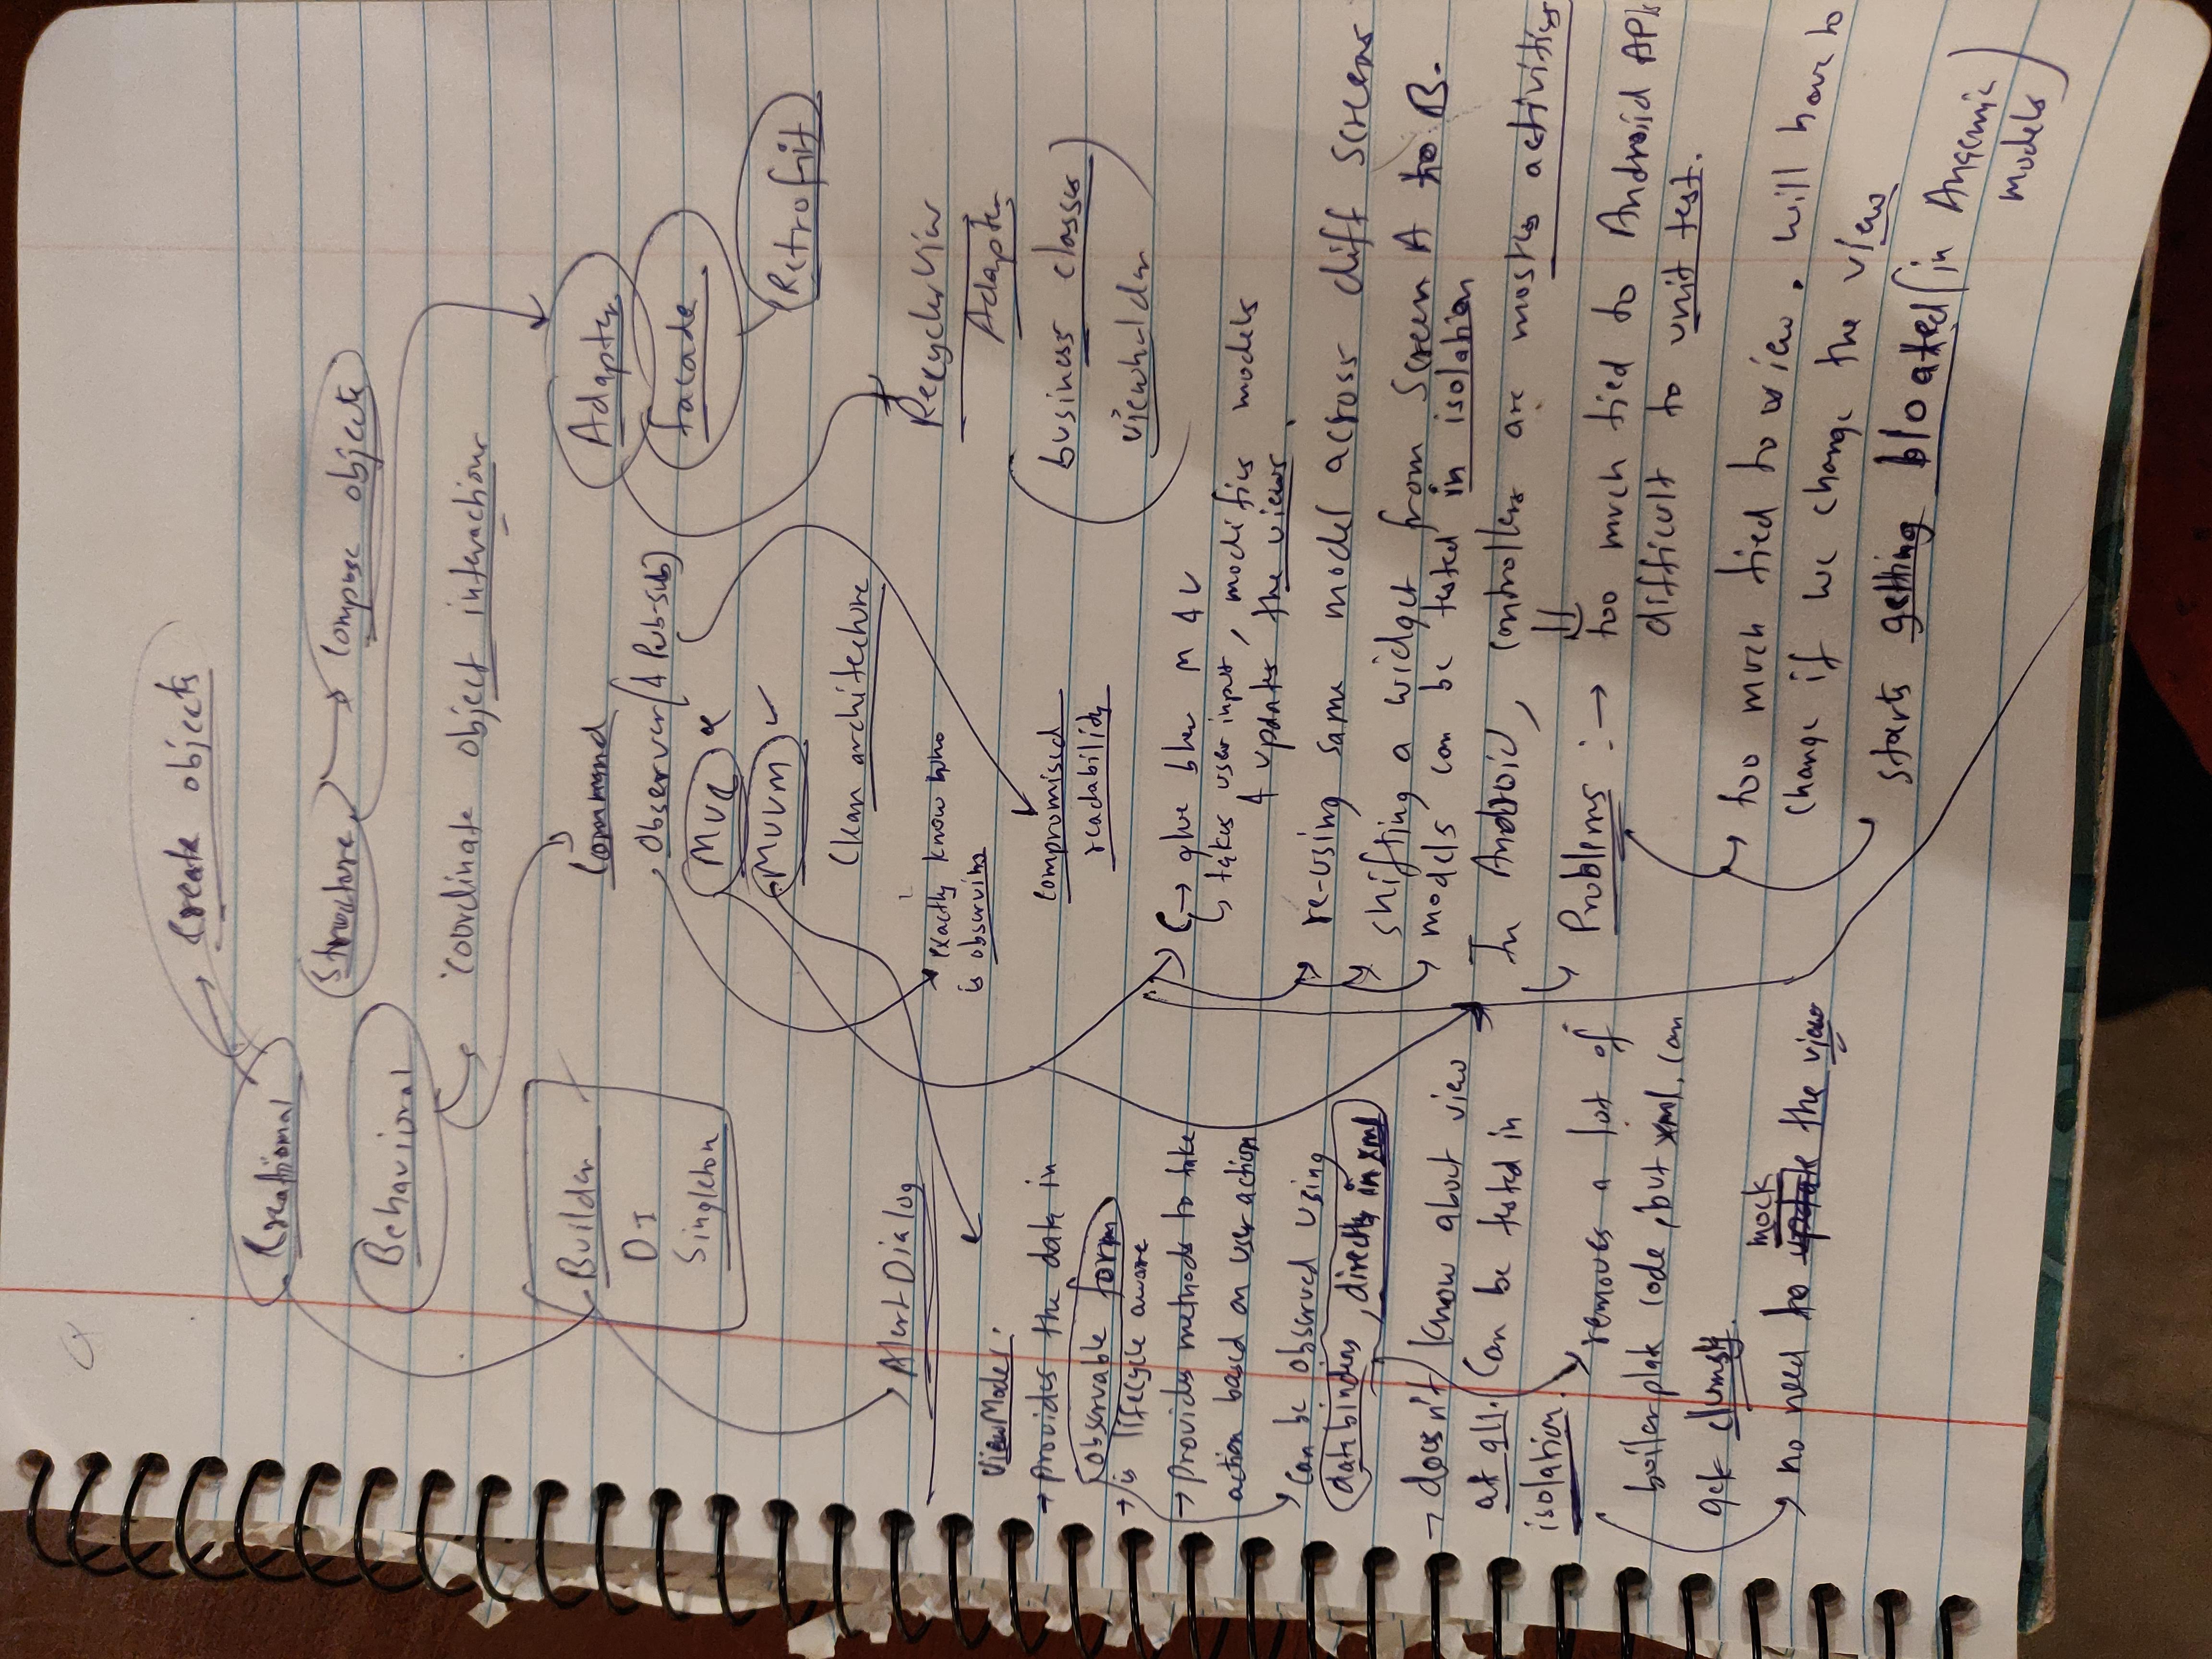 Create objects
Creational
Structure → compose objects
Behavioral
coordinate object interactions
Builder
DI
Singleton
Command
Observer (& Pub-sub)
MVC x
MVVM ✓
Clean architecture
Adapter
facade
Retrofit
AlertDialog
exactly know who
is observing
compromised
readability
RecyclerView
Adapter
business classes
viewholder
ViewModel:
→ provides the data in
observable form
→ is lifecycle aware
→ provides methods to take
action based on user action
can be observed using
databinding, directly in xml
→ doesn't know about view
at all. Can be tested in
isolation.
removes a lot of
boilerplate code, but xml can
get clumsy.
mock
→ no need to update the view
C → glue btw M & V
↳ takes user input, modifies models
& updates the views.
re-using same model across diff screens
shifting a widget from Screen A to B.
models can be tested in isolation
In Android, controllers are mostly activities
Problems : → too much tied to Android APIs
difficult to unit test.
too much tied to view. Will have to
change if we change the view
starts getting bloated (in Anaemic
models)